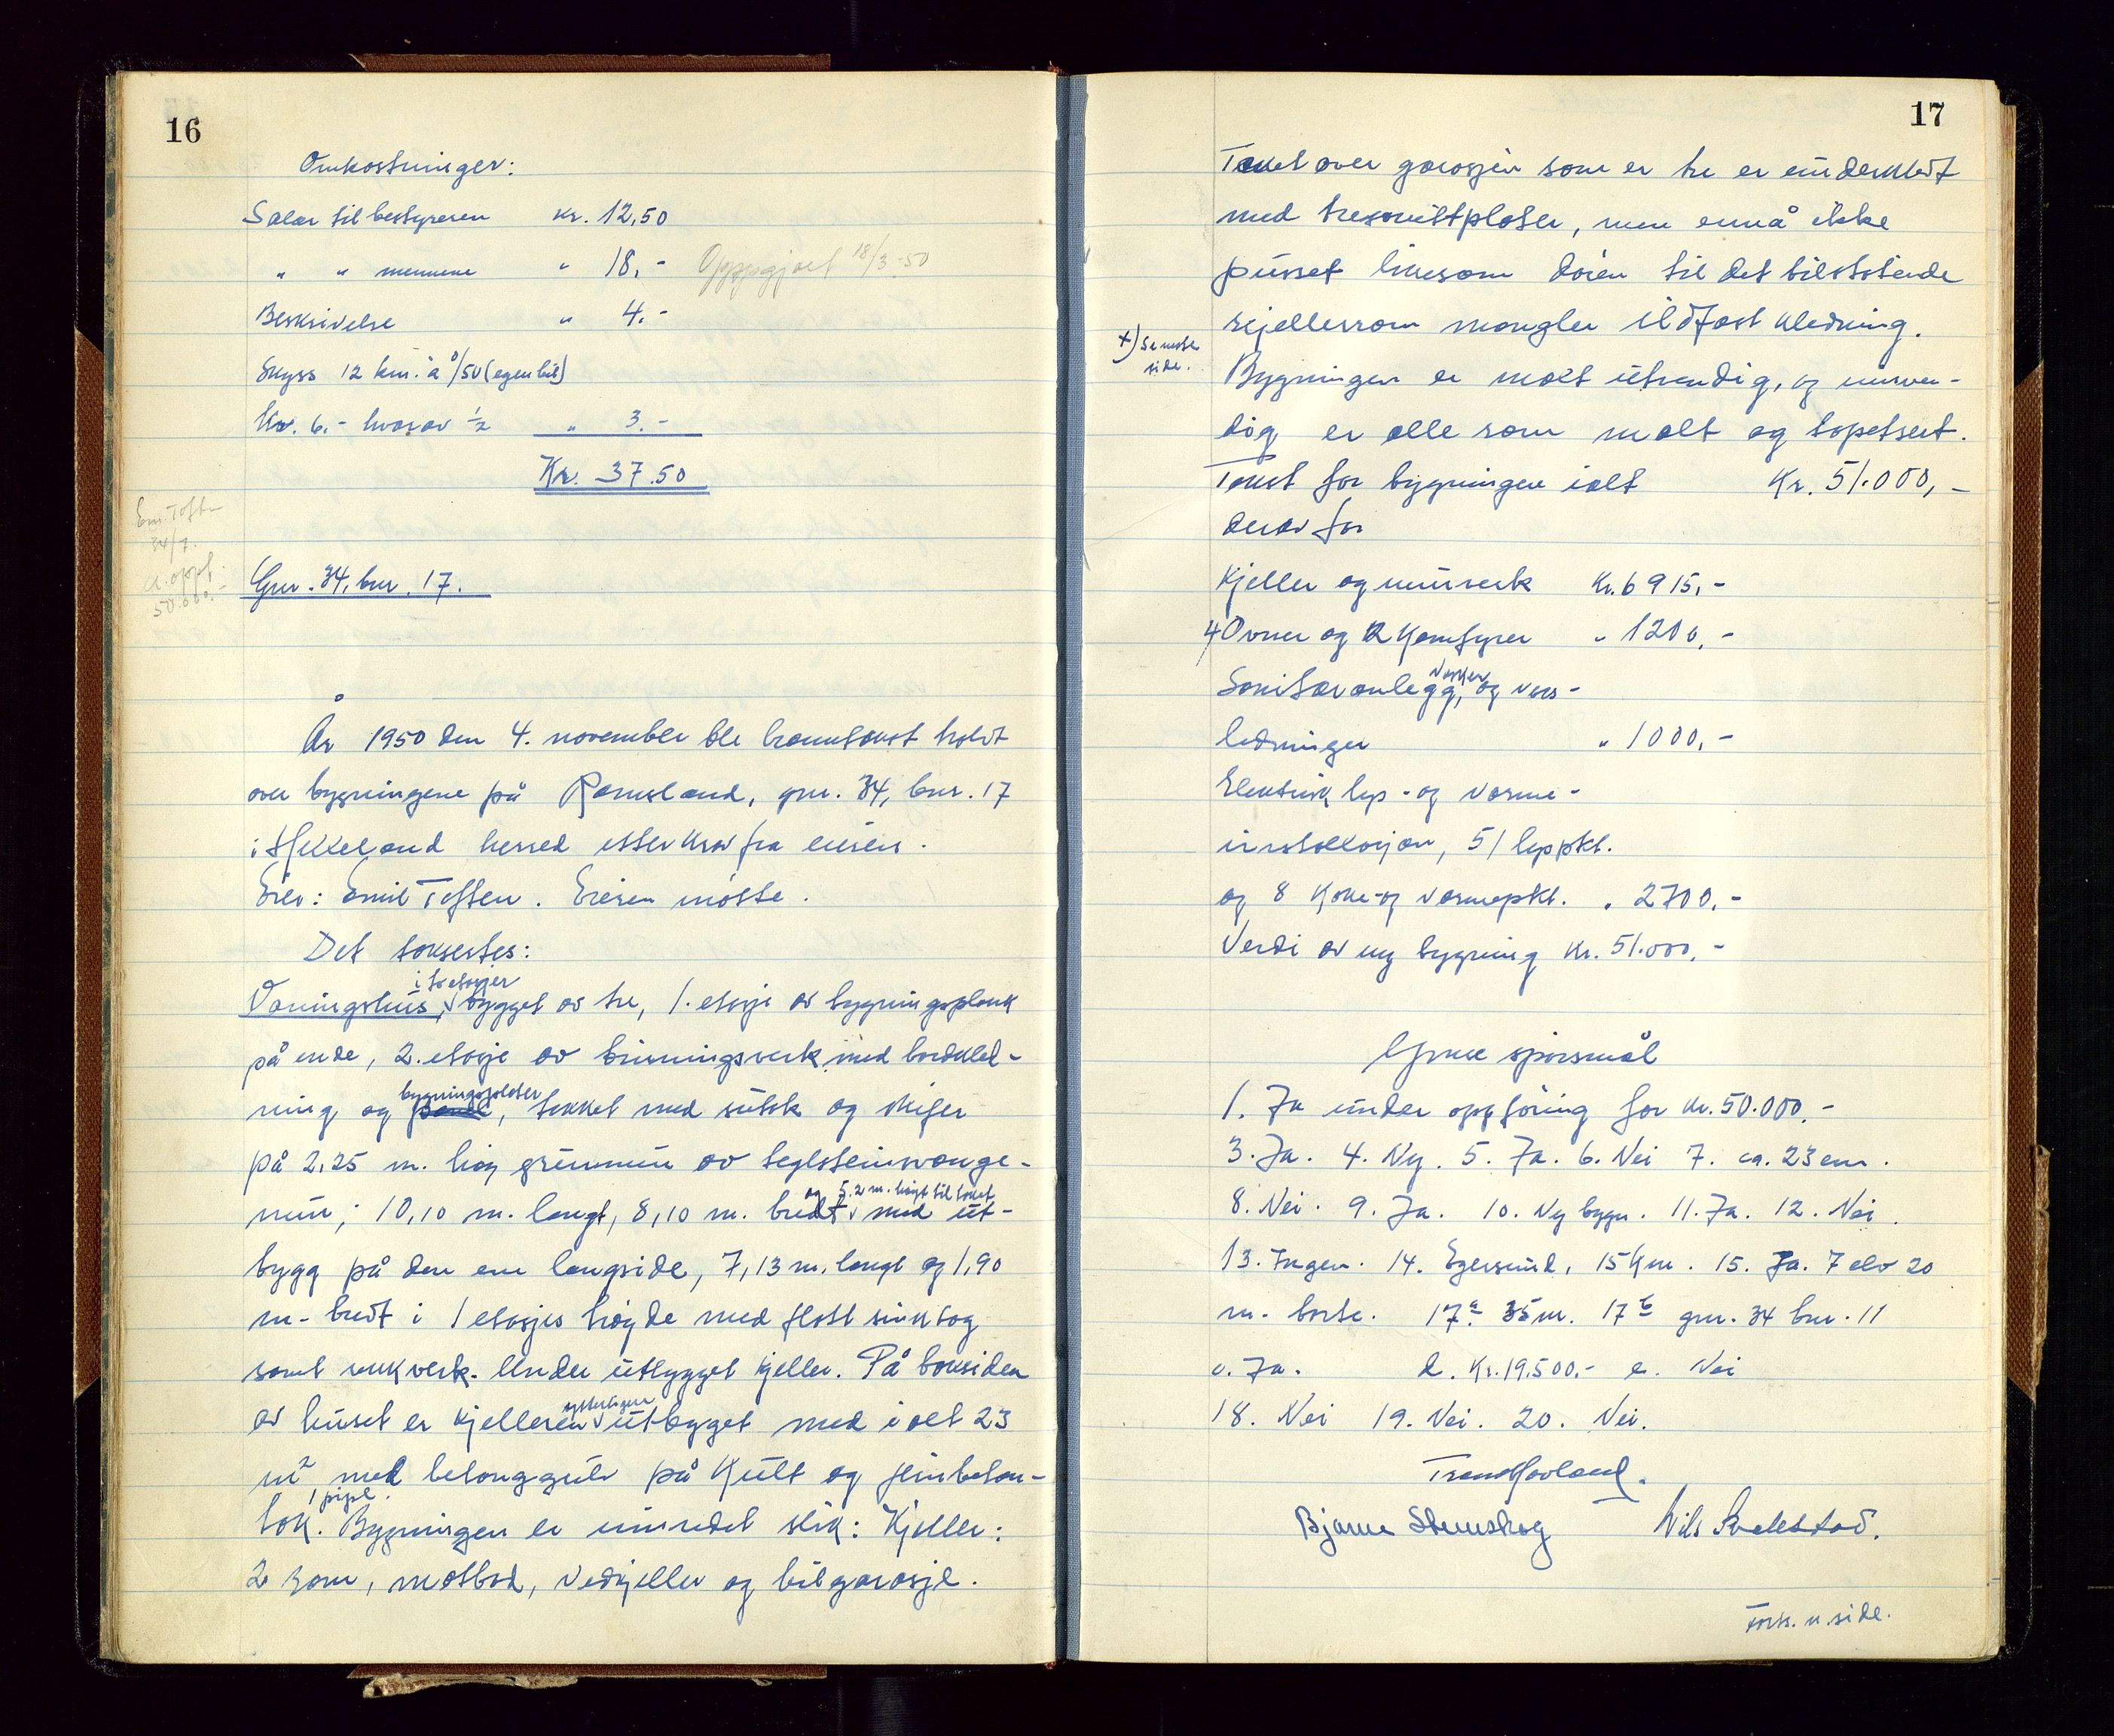 16
Omkostninger:
Salær til bestyreren kr. 12,50
" " mennene " 18,- Oppgjort 18/3-50
Beskrivelse " 4.-
Skyss 12 km. à 0/50 (egen bil)
Kr. 6.- hvorav 1/2 " 3.-
Kr. 37.50
Em. Toften
34/7.
u. oppf.
50.000.-
Gnr. 34, bnr. 17.
År 1950 den 4. november ble branntakst holdt
over bygningene på Ramsland, gnr. 34, bnr. 17
i Helleland herred etter krav fra eieren.
Eier: Emil Toften. Eieren møtte.
Det taksertes:
i to etasjer
Våningshus, bygget av tre, 1. etasje av bygningsplank
på ende, 2. etasje av binningsverk med bordkled-
bygningsplater
ning og panel, tekket med sutak og skifer
på 2,25 m. høg grunnmur av teglsteinsvange-
og 5.2 m. høgt til taket
mur; 10,10 m. langt, 8,10 m. bredt med ut-
bygg på den ene langside, 7,13 m. langt og 1,90
m. bredt i 1 etasjes høyde med flatt sinktag
samt rekkverk. Under utbygget kjeller. På baksiden
ytterligere
av huset er kjelleren utbygget med i alt 23
m² med betonggulv på kult og jernbeton-
1 pipe.
tak. Bygningen er innredet slik: Kjeller:
2 rom, matbod, vedkjeller og bilgarasje.
17
Taket over garasjen som er tre er underkledt
med tresnittplater, men ennå ikke
pusset likesom døren til det tilstøtende
kjellerrom mangler ildfast kledning.
+) Se neste
side.
Bygningen er malt utvendig, og innven-
dig er alle rom malt og tapetsert.
Takst for bygningen ialt Kr. 51.000,-
derav for
Kjeller og murverk Kr. 6915,-
4 Ovner og 2 Komfyrer " 1200,-
vasker
Sanitæranlegg, og vass-
ledninger " 1000,-
Elektrisk lys- og varme-
installasjon, 51 lyspkt.
og 8 koke- og varmepkt. " 2700.-
Verdi av ny bygning Kr. 51.000,-
Ymse spørsmål
1. Ja under oppføring for kr. 50.000.-
3. Ja. 4. Ny. 5. Ja. 6. Nei 7. ca. 23 cm.
8. Nei. 9. Ja. 10. Ny bygn. 11. Ja. 12. Nei.
13. Ingen. 14. Egersund, 15 km. 15. Ja. 7 elv 20
m. borte. 17a. 35 m. 17b gnr. 34 bnr. 11
c. Ja. d. Kr. 19.500.- e. Nei
18. Nei 19. Nei. 20. Nei.
Hovland.
Bjarne Stemshog Nils
Forts. n. side.